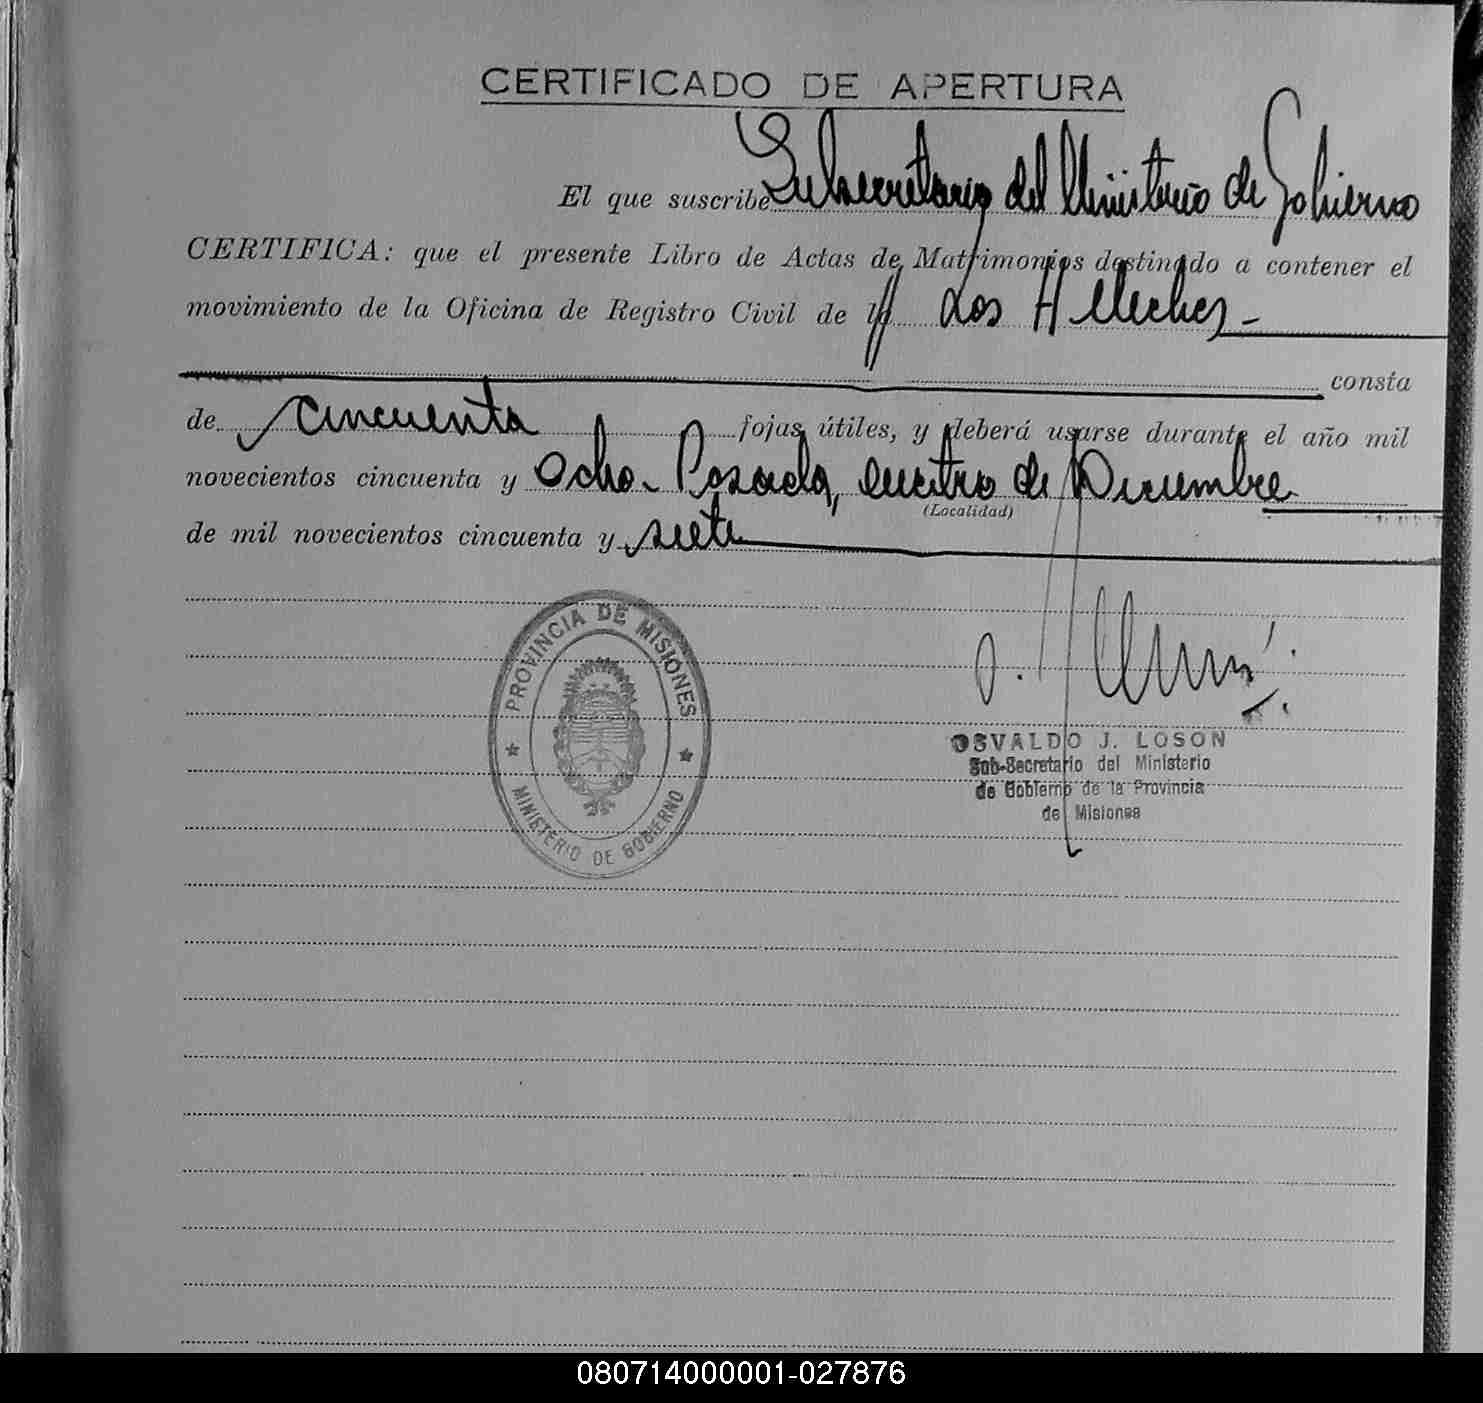 CERTIFICADO DE APERTURA
El que suscribe Subsecretario del Ministerio de Gobierno
CERTIFICA: que el presente Libro de Actas de Matrimonios destinado a contener el
movimiento de la Oficina de Registro Civil de Los Helechos -
consta
de cincuenta fojas útiles, y deberá usarse durante el año mil
novecientos cincuenta y Ocho - Posadas, cuatro de Diciembre
(Localidad)
de mil novecientos cincuenta y siete
PROVINCIA DE MISIONES
MINISTERIO DE GOBIERNO
OSVALDO J. LOSON
Sub-Secretario del Ministerio
de Gobierno de la Provincia
de Misiones
080714000001-027876